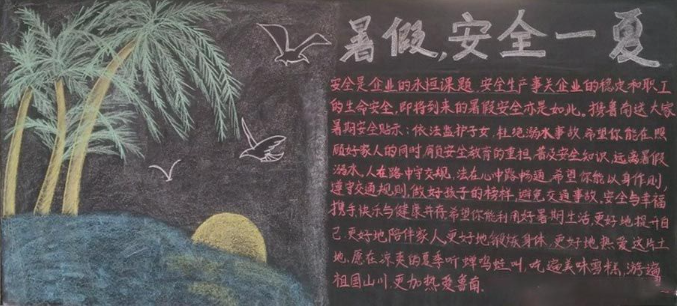 暑假,安全一夏
安全是企业的永恒课题,安全生产事关企业的稳定和职工
的生命安全,即将到来的暑假安全亦是如此。携善南送大家
暑期安全贴示:依法监护子女,杜绝溺水事故希望你能在照
顾好家人的同时肩负安全教育的重担,普及安全知识,远离暑假
溺水,人在路中守交规,法在心中路畅通,希望你能以身作则,
遵守交通规则,做好孩子的榜样,避免交通事故,安全与幸福
携手快乐与健康并存希望你能利用好暑期生活,更好地提升自
己,更好地陪伴家人,更好地锻炼身体,更好地热爱这片土
地,愿在凉爽的夏季听蝉鸣蛙叫,吃遍美味雪糕,游遍
祖国山川,更加热爱善南.